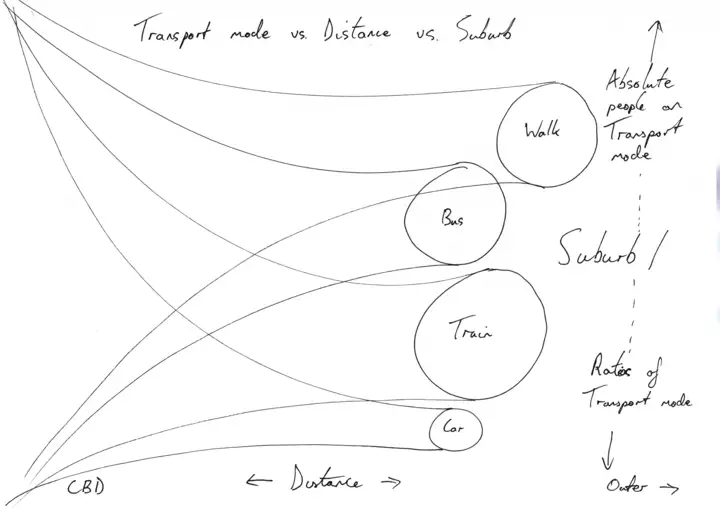 Transport mode vs. Distance vs. Suburb
Absolute
people on
Transport
mode
Walk
Bus
Suburb /
Train
Ratios of
Transport mode
Car
CBD
← Distance →
Outer →